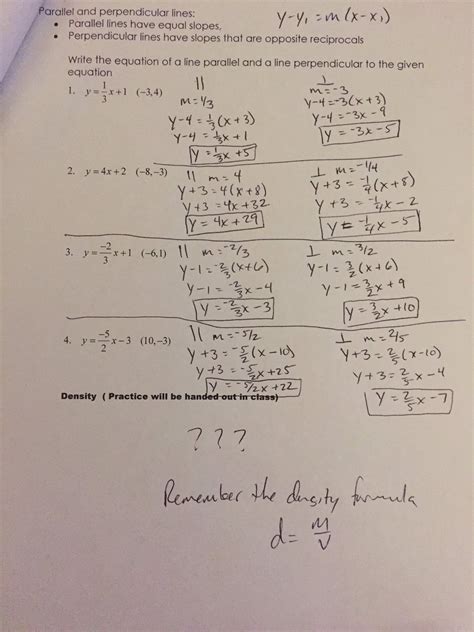 Parallel and perpendicular lines:
y-y₁=m(x-x₁)
• Parallel lines have equal slopes.
• Perpendicular lines have slopes that are opposite reciprocals
Write the equation of a line parallel and a line perpendicular to the given
equation
1. y=1/3x+1 (-3,4)
||
m=1/3
y-4=1/3(x+3)
y-4=1/3x+1
y=1/3x+5
⊥
m=-3
y-4=-3(x+3)
y-4=-3x-9
y=-3x-5
2. y=4x+2 (-8,-3)
|| m=4
y+3=4(x+8)
y+3=4x+32
y=4x+29
⊥ m=-1/4
y+3=-1/4(x+8)
y+3=-1/4x-2
y=-1/4x-5
3. y=-2/3x+1 (-6,1)
|| m=-2/3
y-1=-2/3(x+6)
y-1=-2/3x-4
y=-2/3x-3
⊥ m=3/2
y-1=3/2(x+6)
y-1=3/2x+9
y=3/2x+10
4. y=-5/2x-3 (10,-3)
|| m=-5/2
y+3=-5/2(x-10)
y+3=-5/2x+25
y=-5/2x+22
⊥ m=2/5
y+3=2/5(x-10)
y+3=2/5x-4
y=2/5x-7
Density ( Practice will be handed out in class)
? ? ?
Remember the density formula
d=m/v